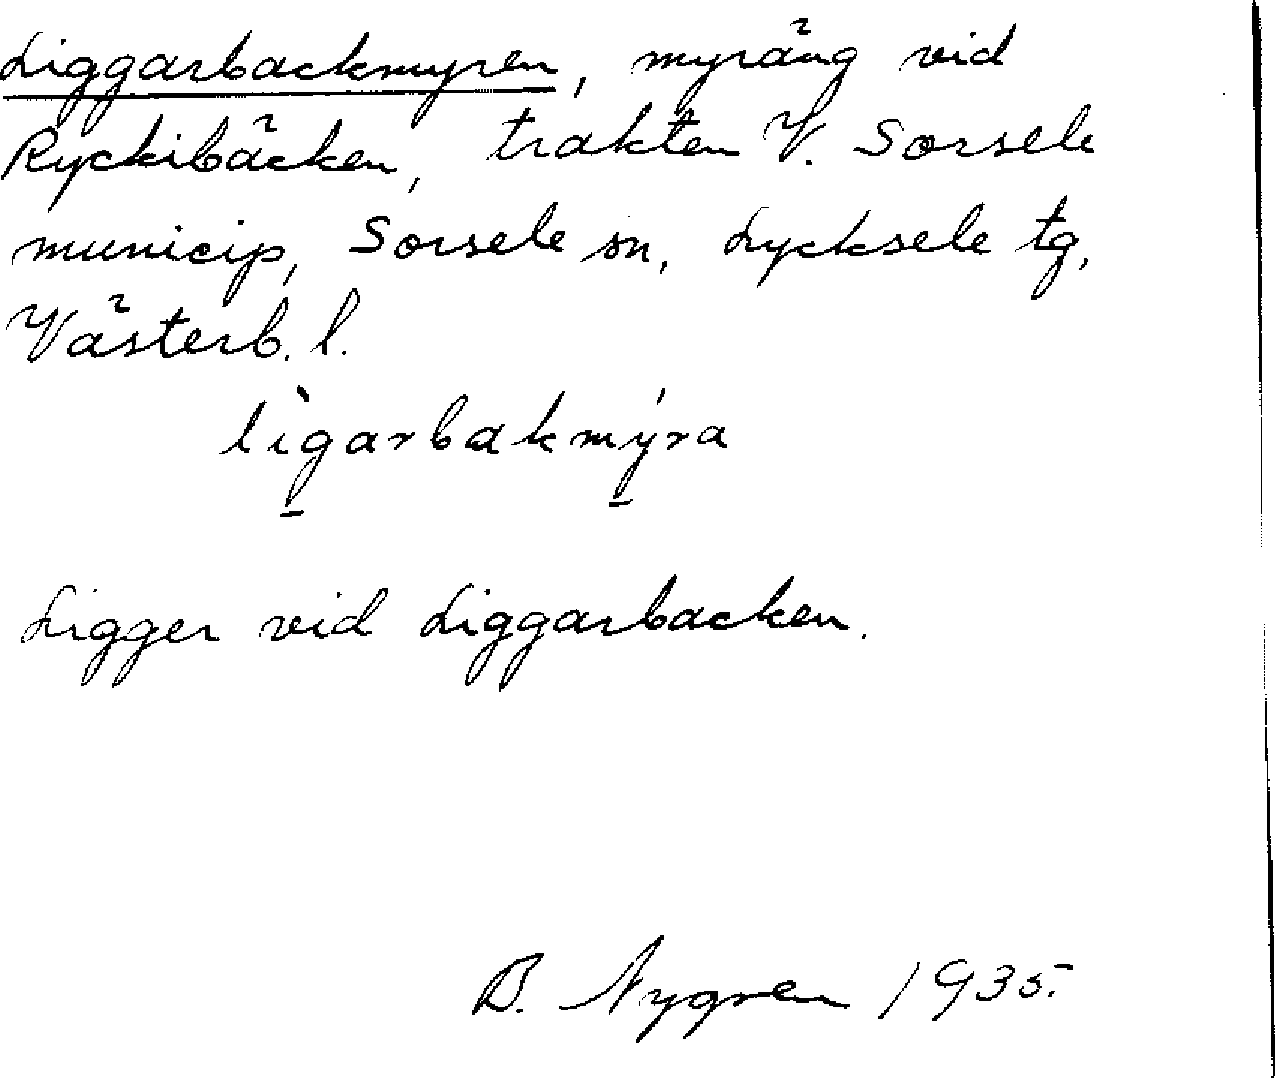 Liggarbackmyren, myräng vid
Ryckibäcken, trakten V. Sorsele
municip, Sorsele sn, Lycksele tg,
Västerb. l.
lìgarbakmýra
Ligger vid Liggarbacken.
B. Nygren 1935.